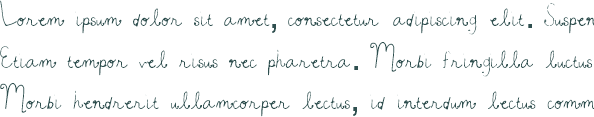 Lorem ipsum dolor sit amet, consectetur adipiscing elit. Suspen
Etiam tempor vel risus nec pharetra. Morbi fringilla luctus
Morbi hendrerit ullamcorper lectus, id interdum lectus comm